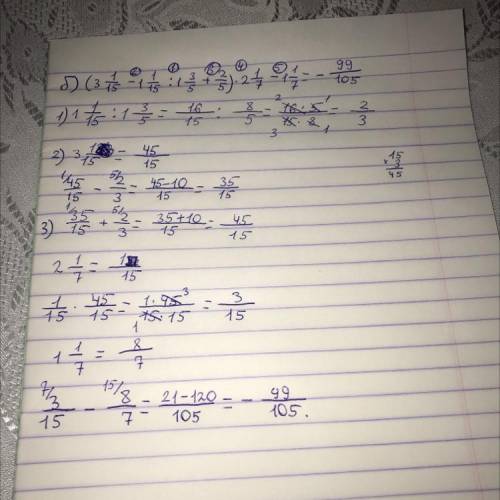 б) (3 1/15 - 1 1/15 : 1 3/5 + 2/5) · 2 1/7 - 1 1/7 = - 99/105
1) 1 1/15 : 1 3/5 = 16/15 : 8/5 = 16 · 5/15 · 8 = 2/3
2) 3 1/15 = 45/15
15
× 3
45
45/15 - 2/3 = 45-10/15 = 35/15
3) 35/15 + 2/3 = 35+10/15 = 45/15
2 1/7 = 1/15
1/15 · 45/15 = 1 · 45/15 · 15 = 3/15
1 1/7 = 8/7
3/15 - 8/7 = 21-120/105 = - 99/105.